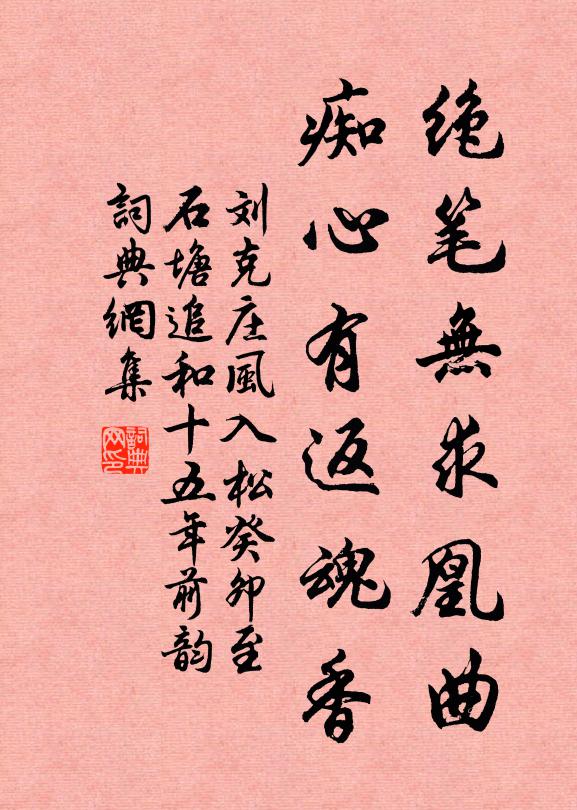 绝笔無求凰曲
痴心有返魂香
刘克庄風入松癸卯至
石塘追和十五年前韵
詞典網集
詞典网印